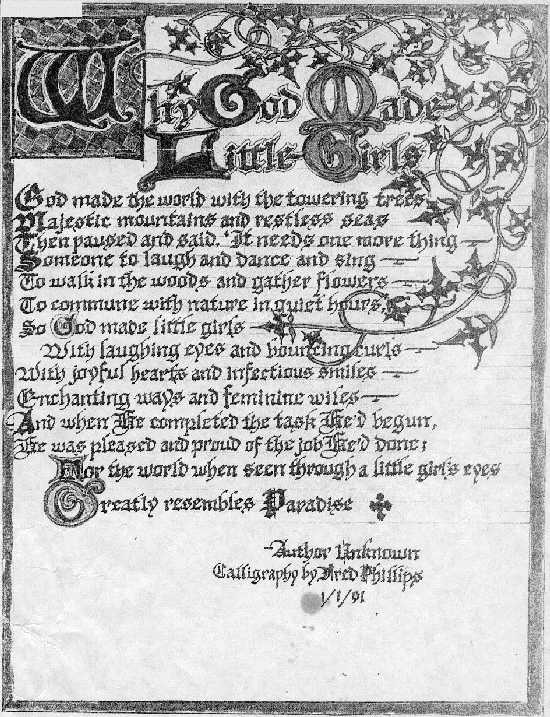 Why God Made
Little Girls
God made the world with the towering trees
Majestic mountains and restless seas
Then paused and said, "It needs one more thing —
Someone to laugh and dance and sing —
To walk in the woods and gather flowers —
To commune with nature in quiet hours,"
So God made little girls —
With laughing eyes and bouncing curls —
With joyful hearts and infectious smiles —
Enchanting ways and feminine wiles —
And when He completed the task He'd begun,
He was pleased and proud of the job He'd done;
For the world when seen through a little girl's eyes
Greatly resembles Paradise
-Author Unknown
Calligraphy by Fred Phillips
1/1/91